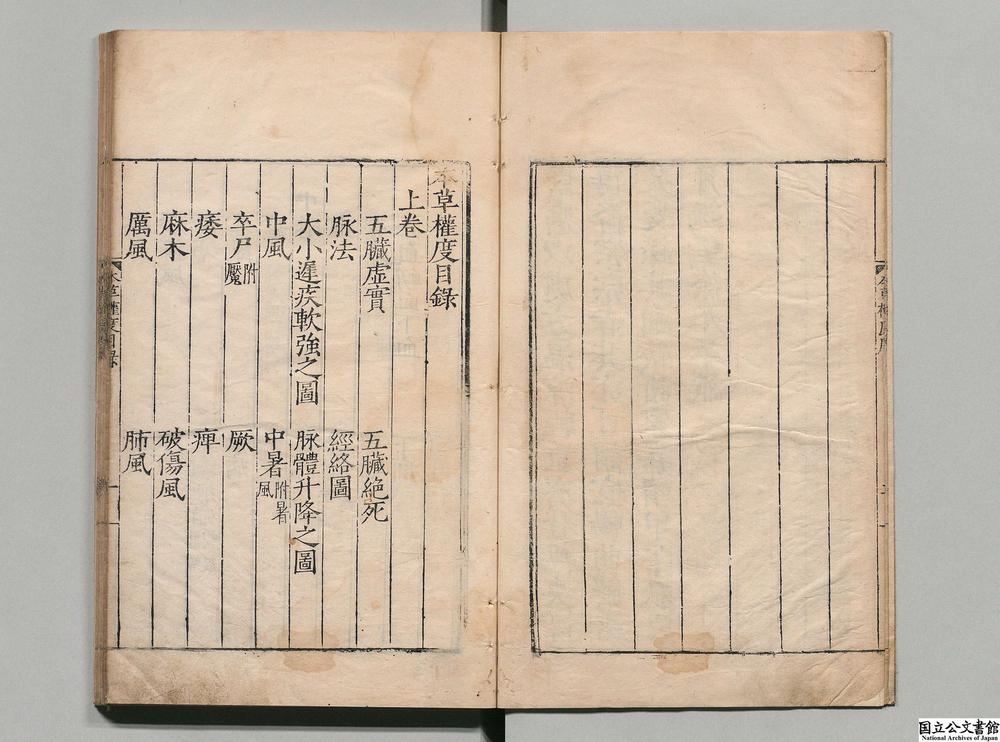 本草權度目錄
上卷
五臟虛實 五臟絕死
脉法 經絡圖
大小遲疾軟強之圖 脉體升降之圖
中風 中暑附暑風
卒尸附魘 厥
痿 痺
麻木 破傷風
厲風 肺風
本草權度目錄
国立公文書館
National Archives of Japan